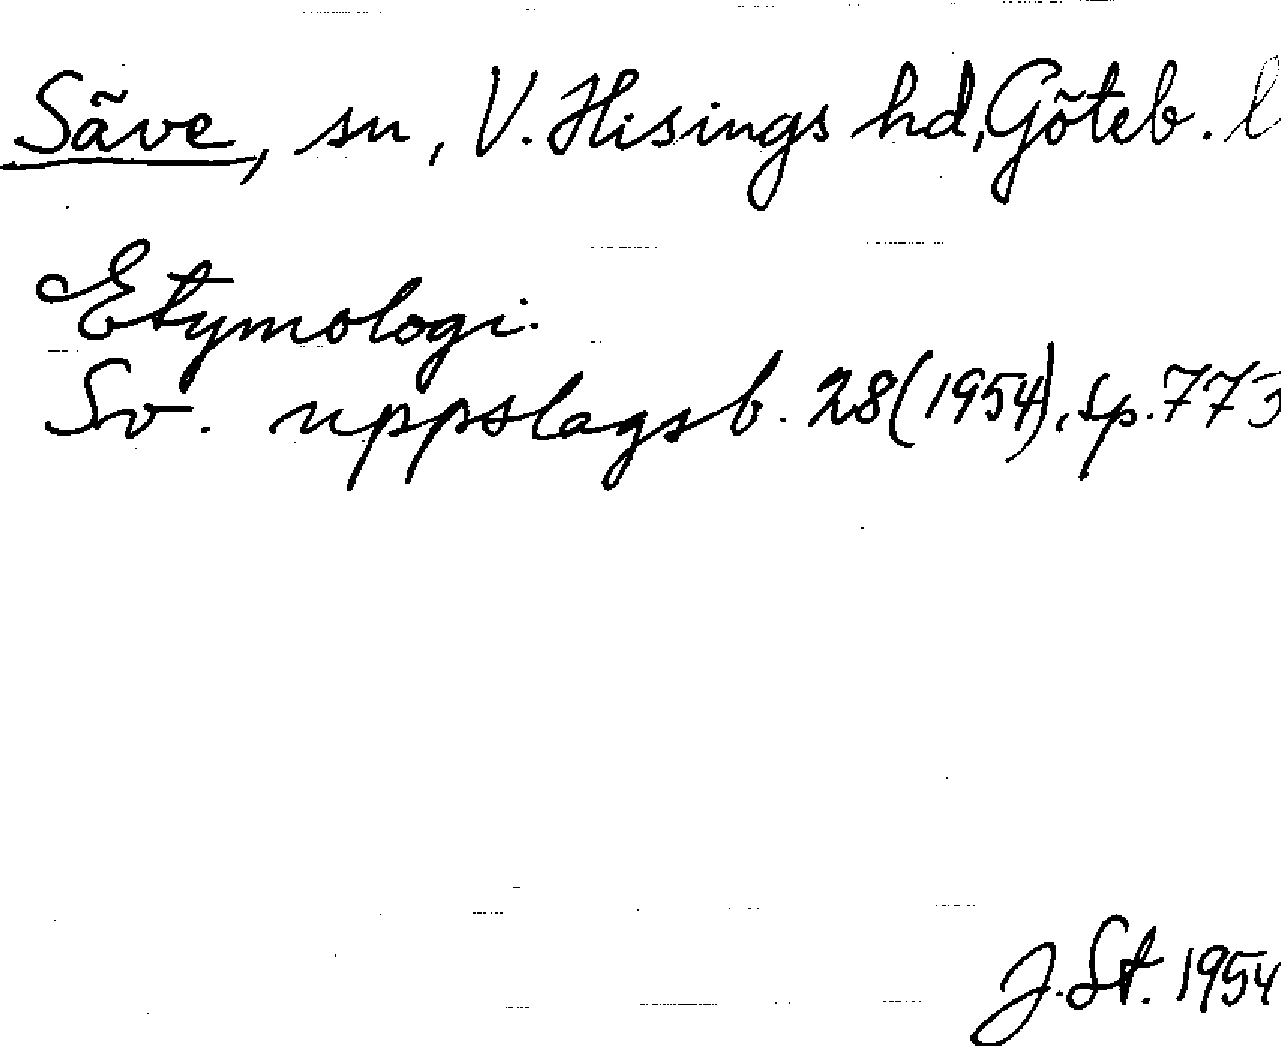 Säve, sn, V. Hisings hd, Göteb. l
Etymologi.
Sv. uppslagsb. 28 (1954), sp. 775
J. St. 1954